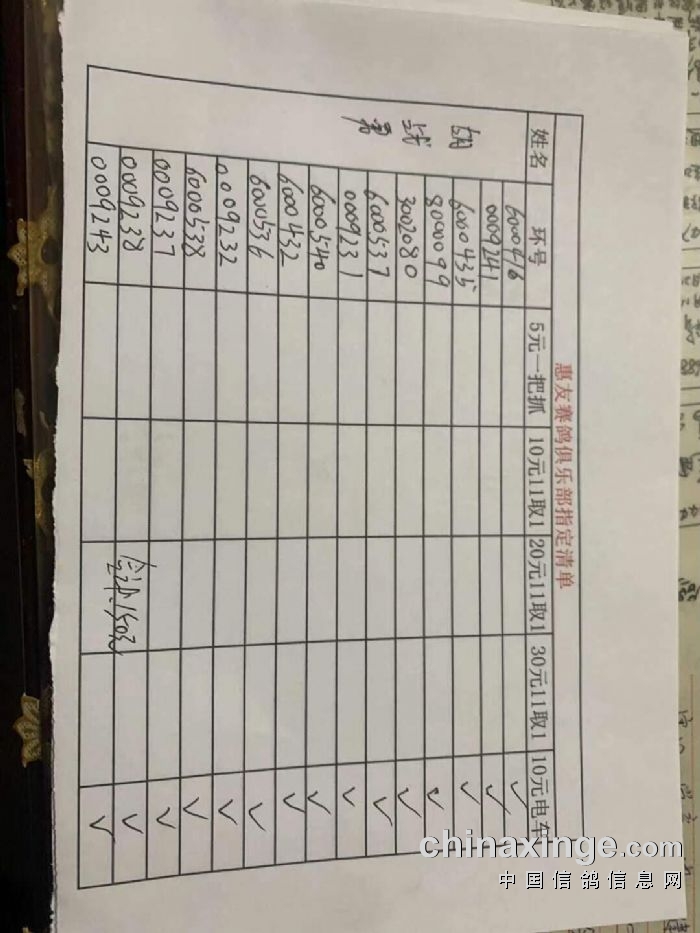 惠友赛鸽俱乐部指定清单
姓名 环号 5元一把抓 10元11取1 20元11取1 30元11取1 10元电车
✓
0009241 ✓
6000435 ✓
8000099 ✓
3002080 ✓
6000537 ✓
0009231 ✓
6000540 ✓
6000432 ✓
6000536 ✓
0009232 ✓
6000538 ✓
0009237 ✓
0009238 ✓
0009243 ✓
合计:150元
chinaxinge.com
中国信鸽信息网